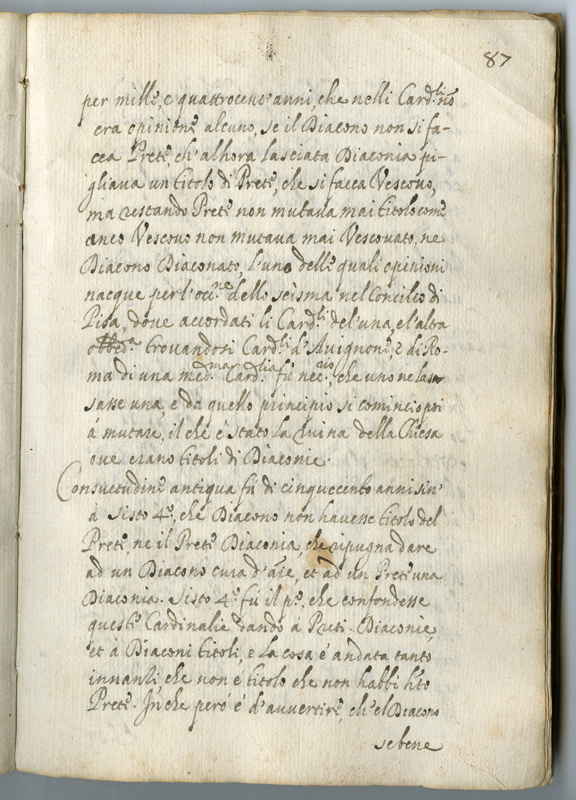 87
per mille, e quattrocent'anni, che nelli Card.li no
era opinione alcuno, se il Diacono non si fa-
cea Prete, ch'alhora lasciata Diaconia pi-
gliava un titolo di Prete, che si facea Vescovo,
ma restando Prete non mutava mai titolo come
anco Vescovo non mutava mai Vescovato, ne
Diacono Diaconato, l'uno delle quali opinioni
nacque per l'occ.ne dello scisma nel Concilio di
Pisa, dove accordati li Card.li del'una, e l'altra
obbed.a trovandosi Card.li d'Avignone, e di Ro-
ma di una med.ma Card.lia fù nec.rio, che uno ne
sasse una, e da quello principio si cominciò poi
á mutare, il che e stato la ruina della Chiesa
ove erano titoli di Diaconie.
Consuetudine antiqua fù di cinquecento anni sin'
á Sisto 4.o, che Diacono non havesse titolo del
Prete, ne il Prete Diaconia, che ripugna dare
ad un Diacono cura d'aīe, et ad un Prete una
Diaconia. Sisto 4.o fù il p.o, che confondesse
queste Cardinalie dando á Preti Diaconie,
et á Diaconi titoli, e la cosa é andata tanto
innanzi che non é titolo che non habbi h'to
Prete. In che peró é d'avvertire, ch'el Diacono
sebene